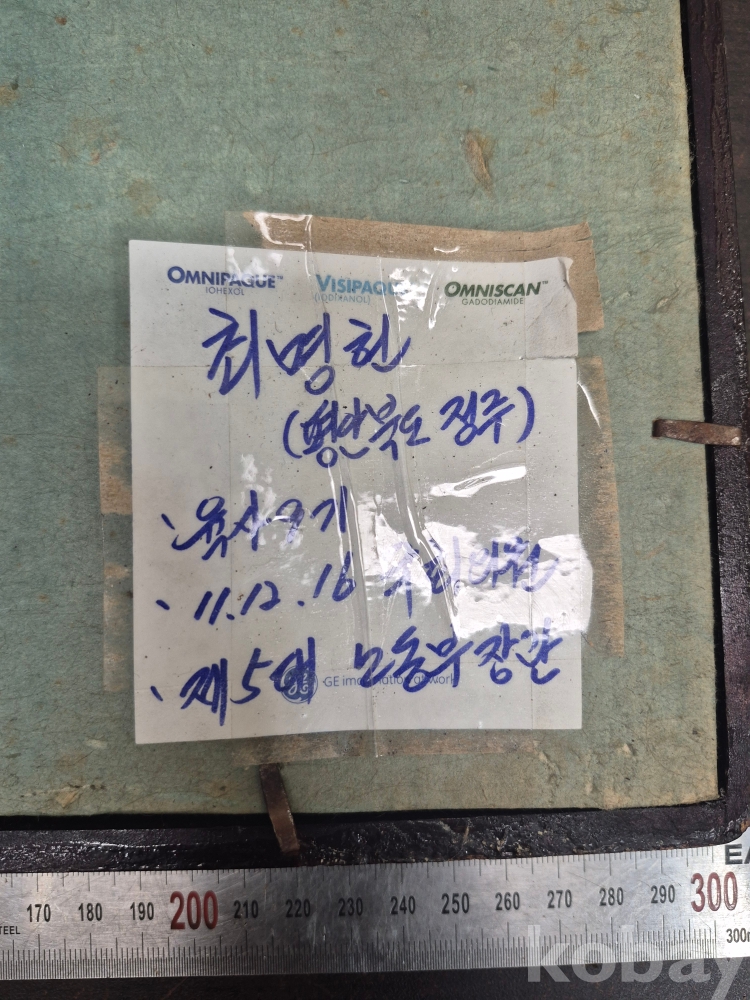 OMNIPAQUE™ VISIPAQUE OMNISCAN™
IOHEXOL (IODIXANOL) GADODIAMIDE
최명헌
(평안북도 정주)
、육사 기
、11.12.16 국회의원
、제5대 노동부장관
GE imagination at work
STEEL 170 180 190 200 210 220 230 240 250 260 270 280 290 300
300m
kobay